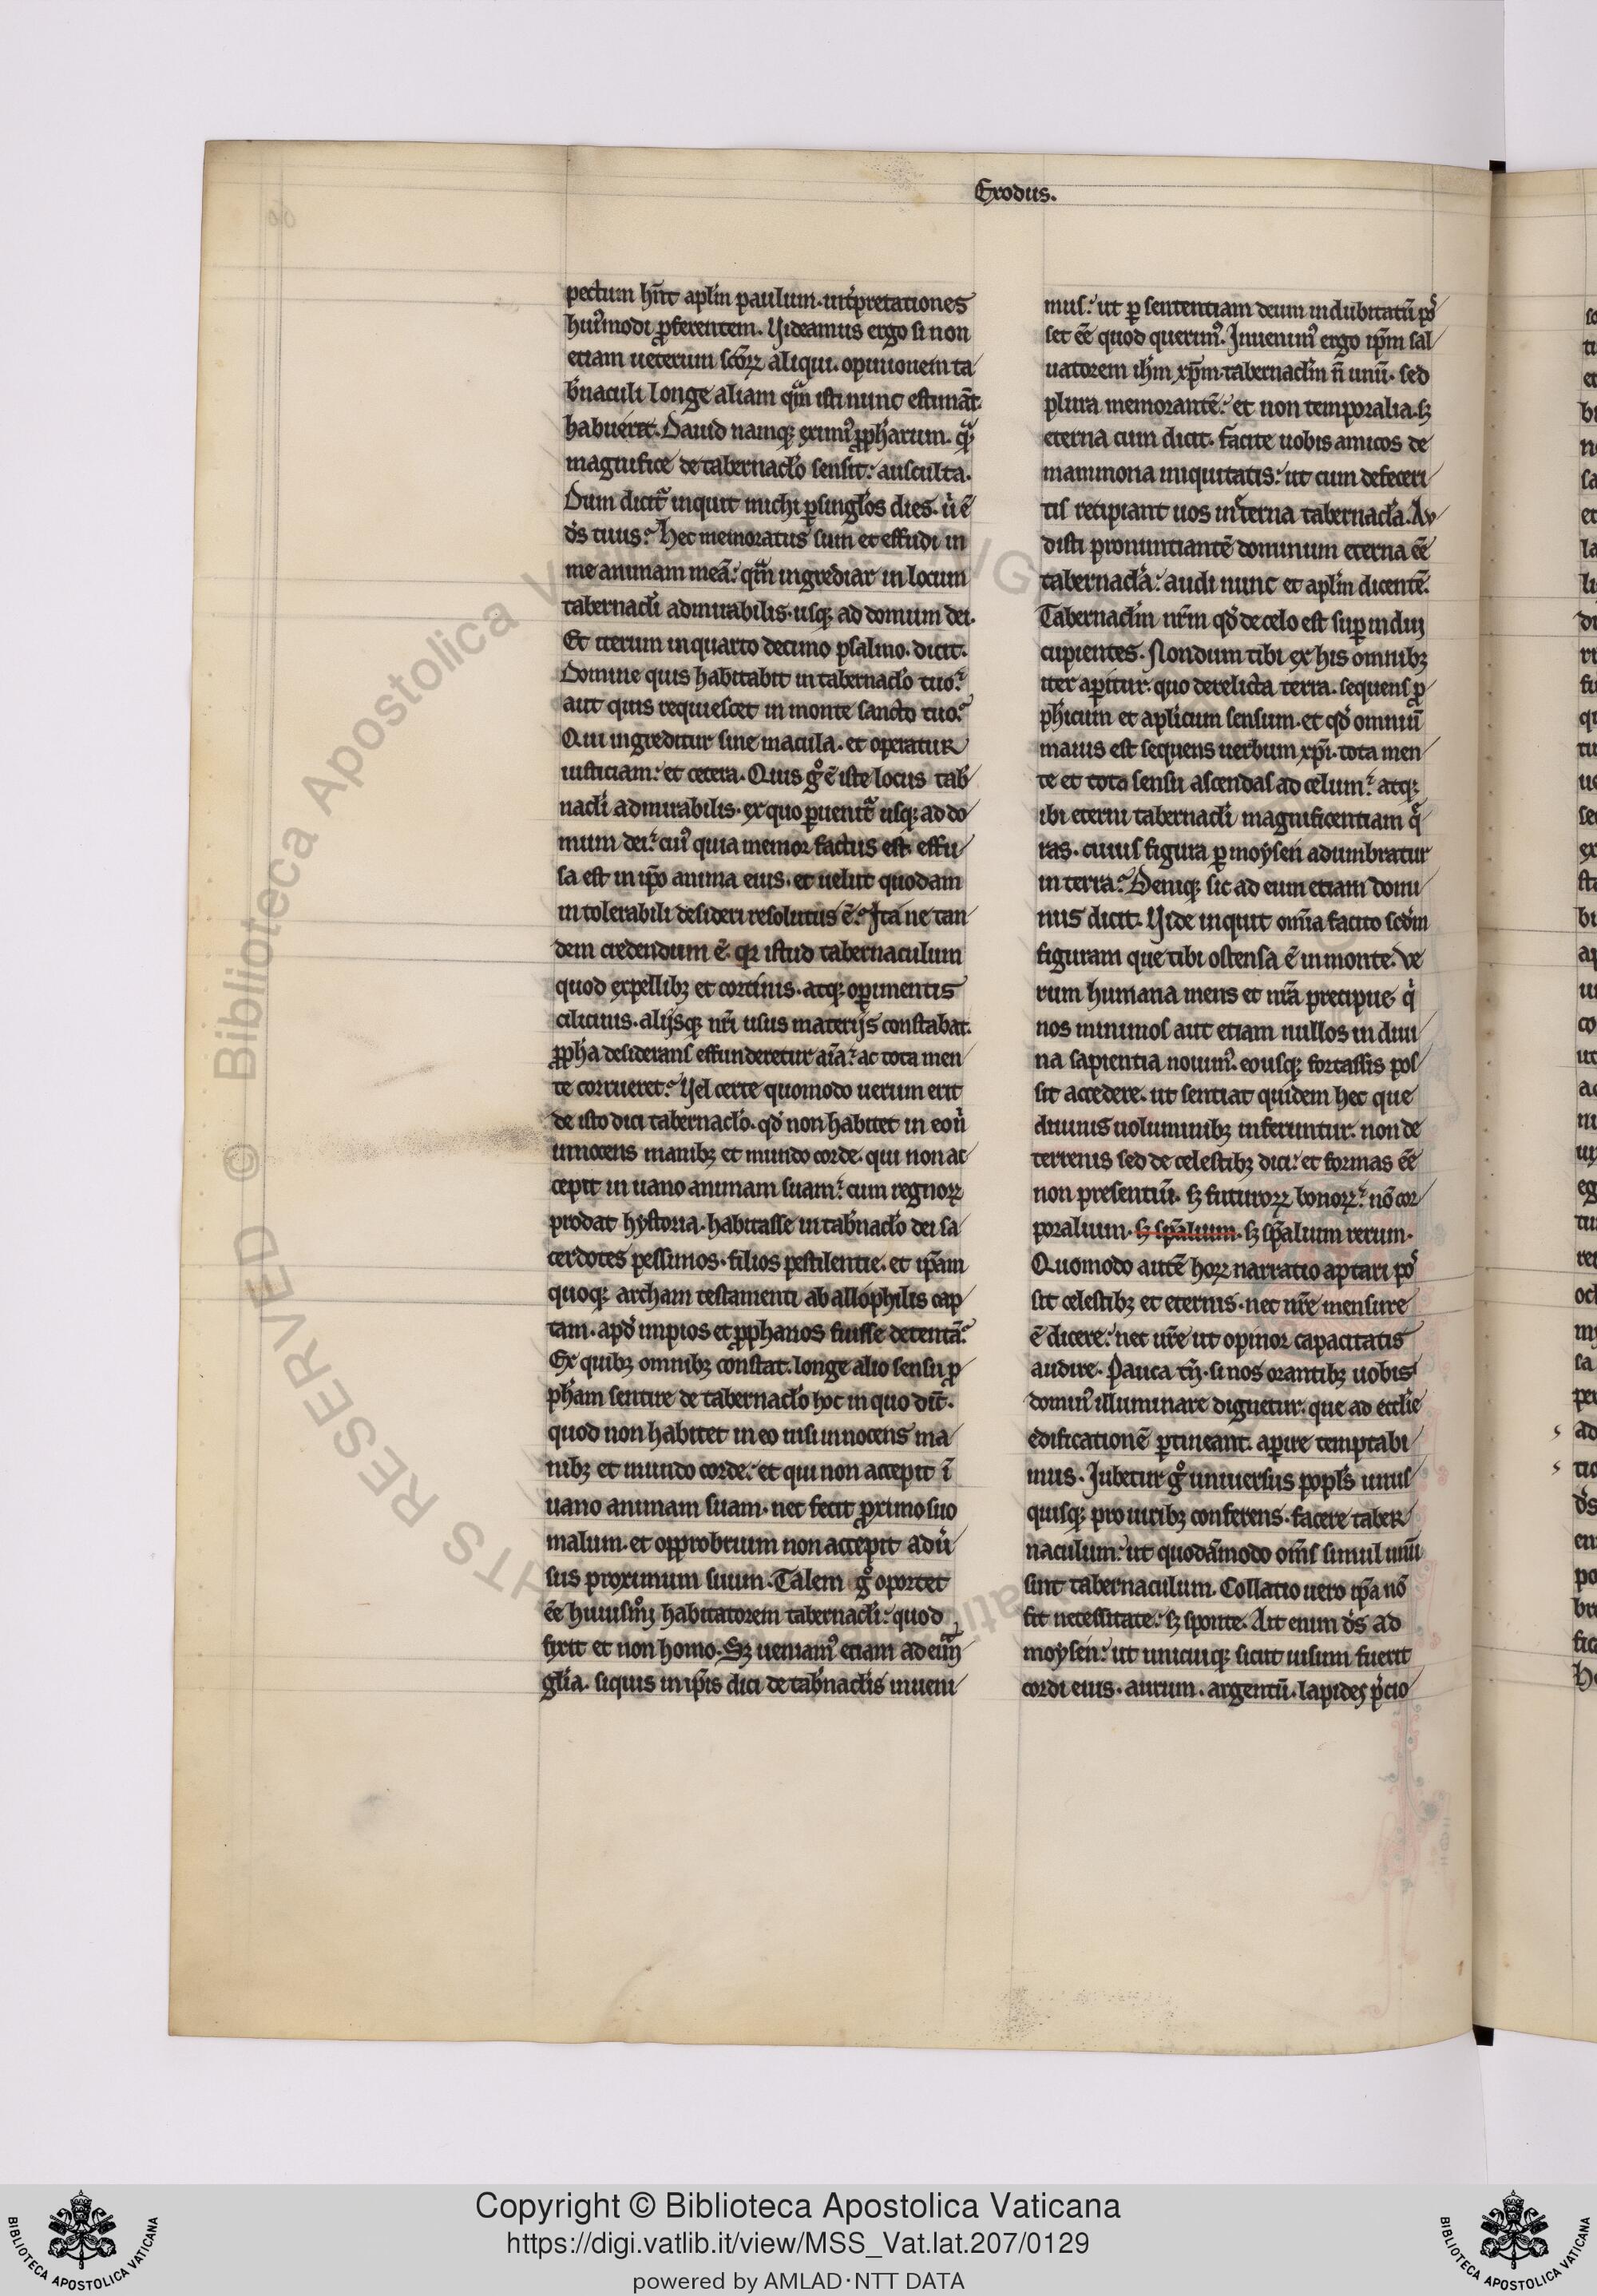 Exodus.
pectum hn̅t apl̅m paulum. int̾pretationes
hui᷒modi ꝓferentem. Videamus ergo si non
etiam ueterum sc̅oꝝ aliqui. opinionem ta
b̾naculi longe aliam qᷓm isti nunc estimāt.
habuerit. Dauid namqꝫ eximi᷒ ꝓph̅arum. qᷓꝫ
magnifice de tabernacl̅o sensit. ausculta.
Dum dicit᷑ inquit michi ꝑ singl̅os dies. u̇ ē
ds̅ tuus. Hec memoratus sum et effudi in
me animam meā. qm̅ ingrediar in locum
tabernacl̅i admirabilis. usqꝫ ad domum dei.
Et iterum in quarto decimo psalmo. dicit.
Domine quis habitabit in tabernacl̅o tuo.
aut quis requiescet in monte sancto tuo.
Qui ingreditur sine macula. et operatur
iusticiam. et cetera. Quis gͦ ē iste locus tab̾
nacl̅i admirabilis. ex quo ꝑuenit᷑ usqꝫ ad do
mum dei. cui᷒ quia memor factus est effu
sa est in ip̅o anima eius. et uelut quodam
intolerabili desideri resolutus ē. Ita ne tan
dem credendum ē. qꝛ istud tabernaculum
quod ex pellibꝫ et cortinis. atqꝫ oꝑimentis
cilicinis. alijsqꝫ nr̅i usus materijs constabat.
ꝓph̅a desiderans effunderetur aīa. ac tota men
te corrueret. Vel certe quomodo uerum erit
de isto dici tabernacl̅o. qd̾ non habitet in eo ṅ
innocens manibꝫ et mundo corde. qui non ac
cepit in uano animam suam. cum regnoꝝ
prodat hystoria. habitasse in tab̾nacl̅o dei sa
cerdotes pessimos. filios pestilentie. et ip̅am
quoqꝫ archam testamenti ab allophilis cap
tam. apd̾ impios et ꝓphanos fuisse detentā.
Ex quibꝫ omnibꝫ constat. longe alio sensu ꝓ
ph̅am sentire de tabernacl̅o hoc in quo dic̅t.
quod non habitet in eo nisi innocens ma
nibꝫ et mundo corde. et qui non accepit ī
uano animam suam. nec fecit ꝓximo suo
malum. et opprobrium non accepit adu̾
sus proximum suum. Talem gͦ oportet
eē huiusmͦi habitatorem tabernacl̅i. quod
fixit et non homo. Sꝫ ueniam᷒ etiam ad euᷓn
gl̅ia. siquis in ip̅is dici de tab̾nacl̅is inueni
mus. ut ꝑ sententiam deum indubitatū pos
set eē quod querim᷒. Inuenim᷒ ergo ip̅m sal
uatorem ih̅m xp̅m. tabernacl̅m n̅ unū. sed
plura memorantē. et non temporalia. sꝫ
eterna cum dicit. facite uobis amicos de
mammona iniquitatis. ut cum defeceri
tis recipiant uos in eterna tabernacl̅a. Au
disti pronuntiantē dominum eterna eē
tabernacl̅a. audi nunc et apl̅m dicentē.
Tabernacl̅m nr̅m qd̾ de celo est suꝑ indui
cupientes. Nondum tibi ex his omnibꝫ
iter aꝑitur. quo derelicta terra. sequens ꝓ
ph̅icum et apl̅icum sensum. et qd̾ omniū
maius est sequens uerbum xp̅i. tota men
te et toto sensu ascendas ad celum. atqꝫ
ibi eterni tabernacl̅i magnificentiam q̄
ras. cuius figura ꝑ moysen adumbratur
in terra. Deniqꝫ sic ad eum etiam domi
nus dicit. Vide inquit om̅ia facito sedm̅
figuram que tibi ostensa ē in monte. Ve
rum humana mens et nr̅a precipue. qͥ
nos minimos aut etiam nullos in diui
na sapientia nouim᷒. eousqꝫ fortassis pos
sit accedere. ut sentiat quidem hec que
diuinis uoluminibꝫ inferuntur. non de
terrenis sed de celestibꝫ dici. et formas eē
non presentiū. sꝫ futuroꝝ bonoꝝ. nō cor
poralium. sꝫ sp̅alium. sꝫ sp̅alium rerum.
Quomodo autē hoꝝ narratio aptari pos
sit celestibꝫ et eternis. nec nr̅e mensure
ē dicere. nec ur̅e ut opinor capacitatis
audire. Pauca tn̅. si nos orantibꝫ uobis
domin᷒ illuminare dignetur. que ad eccl̅ie
edificationē ꝑtineant. aꝑire temptabi
mus. Iubetur gͦ uniuersus popl̅s unus
quisqꝫ pro uiribꝫ conferens. facere taber
naculum. ut quodāmodo om̅s simul unū
sint tabernaculum. Collatio uero ip̅a nō
fit necessitate. sꝫ sponte. Ait enim ds̅ ad
moysen. ut unicuiqꝫ sicut uisum fuerit
cordi eius. aurum. argentū. lapides p̾cio
Copyright © Biblioteca Apostolica Vaticana
https://digi.vatlib.it/view/MSS_Vat.lat.207/0129
powered by AMLAD·NTT DATA
BIBLIOTECA APOSTOLICA VATICANA
BIBLIOTECA APOSTOLICA VATICANA